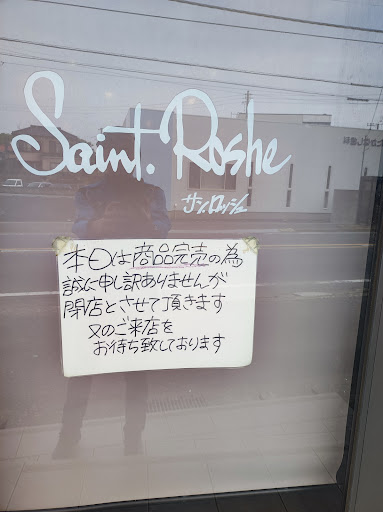 Saint. Roshe
サン.ロッシェ
本日は商品完売の為
誠に申し訳ありませんが
閉店とさせて頂きます
又のご来店を
お待ち致しております